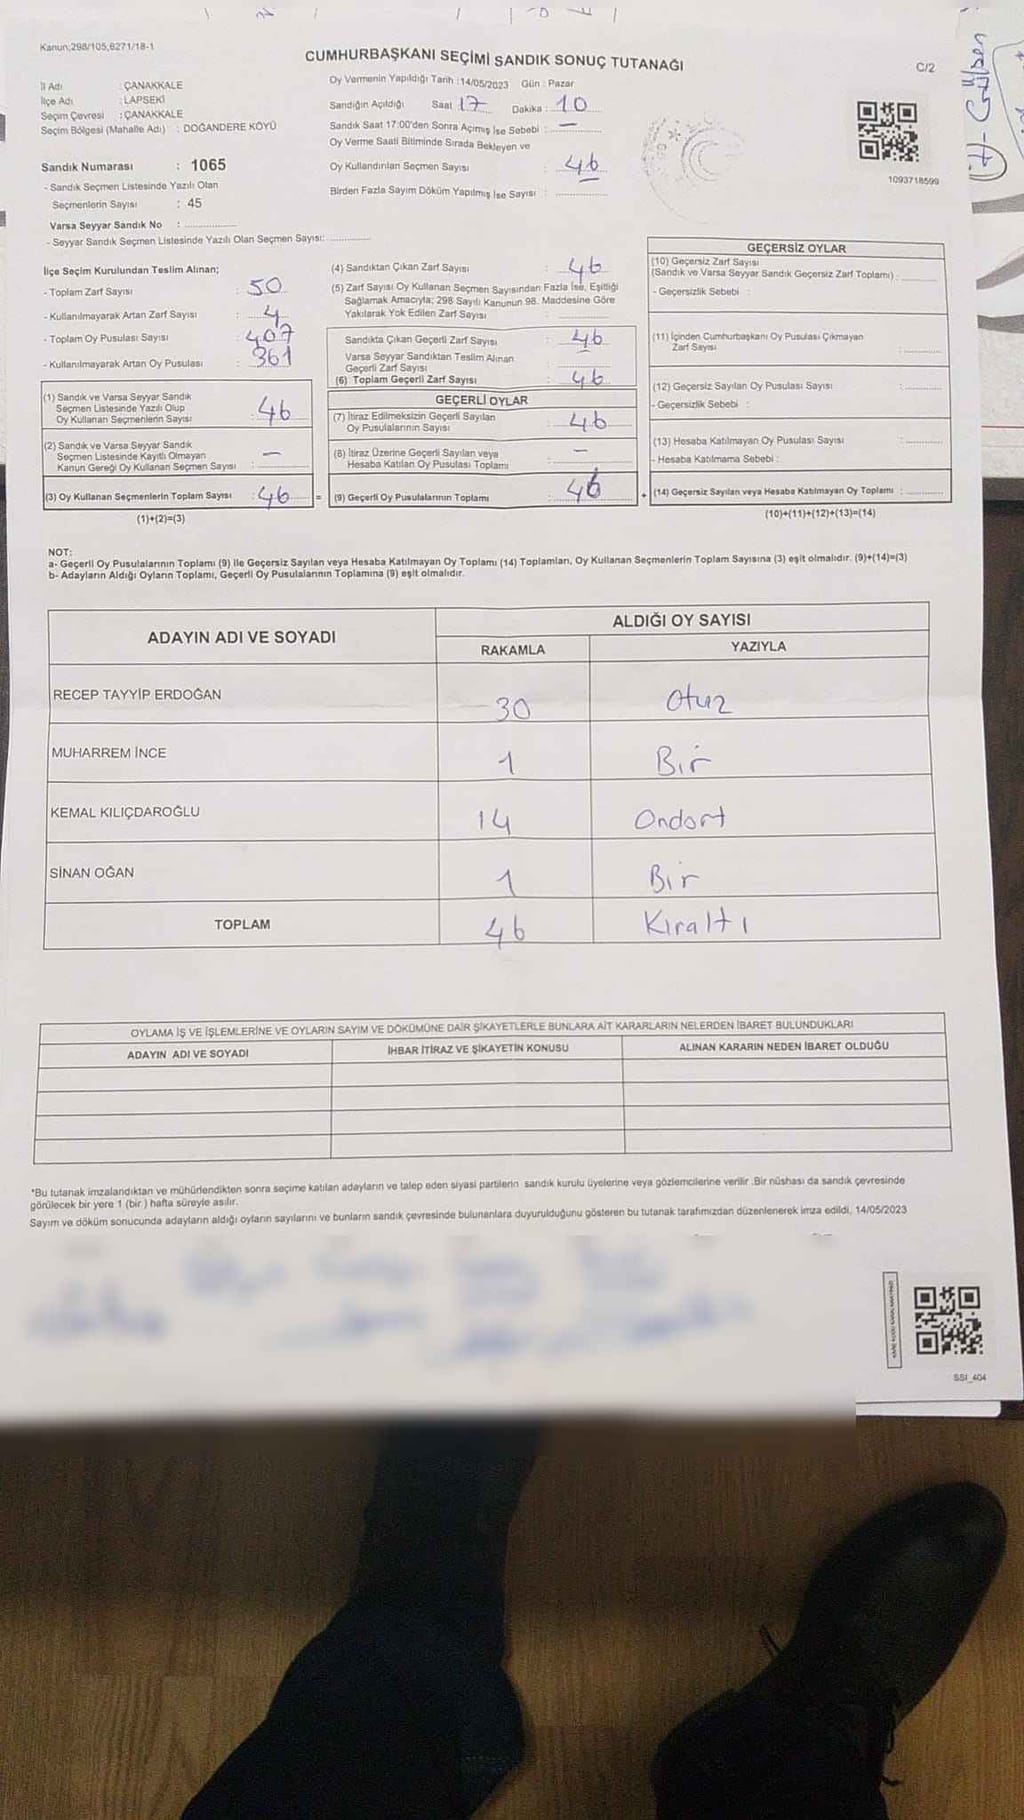 Kanun;298/105,6271/18-1
CUMHURBAŞKANI SEÇİMİ SANDIK SONUÇ TUTANAĞI
C/2
İl Adı : ÇANAKKALE
İlçe Adı : LAPSEKİ
Seçim Çevresi : ÇANAKKALE
Seçim Bölgesi (Mahalle Adı) : DOĞANDERE KÖYÜ
Oy Vermenin Yapıldığı Tarih : 14/05/2023 Gün : Pazar
Sandığın Açıldığı Saat 17 Dakika : 10
Sandık Saat 17:00'den Sonra Açılmış İse Sebebi : —
Oy Verme Saati Bitiminde Sırada Bekleyen ve
Oy Kullandırılan Seçmen Sayısı : 46
Birden Fazla Sayım Döküm Yapılmış İse Sayısı :
1093718599
Gülşen
Sandık Numarası : 1065
- Sandık Seçmen Listesinde Yazılı Olan
Seçmenlerin Sayısı : 45
Varsa Seyyar Sandık No :
- Seyyar Sandık Seçmen Listesinde Yazılı Olan Seçmen Sayısı:
İlçe Seçim Kurulundan Teslim Alınan;
- Toplam Zarf Sayısı : 50
- Kullanılmayarak Artan Zarf Sayısı : 4
- Toplam Oy Pusulası Sayısı : 407
- Kullanılmayarak Artan Oy Pusulası : 361
(1) Sandık ve Varsa Seyyar Sandık
Seçmen Listesinde Yazılı Olup
Oy Kullanan Seçmenlerin Sayısı : 46
(2) Sandık ve Varsa Seyyar Sandık
Seçmen Listesinde Kayıtlı Olmayan
Kanun Gereği Oy Kullanan Seçmen Sayısı : —
(3) Oy Kullanan Seçmenlerin Toplam Sayısı : 46
(1)+(2)=(3)
(4) Sandıktan Çıkan Zarf Sayısı : 46
(5) Zarf Sayısı Oy Kullanan Seçmen Sayısından Fazla İse, Eşitliği
Sağlamak Amacıyla; 298 Sayılı Kanunun 98. Maddesine Göre
Yakılarak Yok Edilen Zarf Sayısı :
Sandıkta Çıkan Geçerli Zarf Sayısı : 46
Varsa Seyyar Sandıktan Teslim Alınan
Geçerli Zarf Sayısı :
(6) Toplam Geçerli Zarf Sayısı : 46
GEÇERLİ OYLAR
(7) İtiraz Edilmeksizin Geçerli Sayılan
Oy Pusulalarının Sayısı : 46
(8) İtiraz Üzerine Geçerli Sayılan veya
Hesaba Katılan Oy Pusulası Toplamı : —
= (9) Geçerli Oy Pusulalarının Toplamı : 46
GEÇERSİZ OYLAR
(10) Geçersiz Zarf Sayısı
(Sandık ve Varsa Seyyar Sandık Geçersiz Zarf Toplamı) :
- Geçersizlik Sebebi :
(11) İçinden Cumhurbaşkanı Oy Pusulası Çıkmayan
Zarf Sayısı :
(12) Geçersiz Sayılan Oy Pusulası Sayısı :
- Geçersizlik Sebebi :
(13) Hesaba Katılmayan Oy Pusulası Sayısı :
- Hesaba Katılmama Sebebi :
+ (14) Geçersiz Sayılan veya Hesaba Katılmayan Oy Toplamı :
(10)+(11)+(12)+(13)=(14)
NOT:
a- Geçerli Oy Pusulalarının Toplamı (9) ile Geçersiz Sayılan veya Hesaba Katılmayan Oy Toplamı (14) Toplamları, Oy Kullanan Seçmenlerin Toplam Sayısına (3) eşit olmalıdır. (9)+(14)=(3)
b- Adayların Aldığı Oyların Toplamı, Geçerli Oy Pusulalarının Toplamına (9) eşit olmalıdır.
ADAYIN ADI VE SOYADI
ALDIĞI OY SAYISI
RAKAMLA YAZIYLA
RECEP TAYYİP ERDOĞAN 30 Otuz
MUHARREM İNCE 1 Bir
KEMAL KILIÇDAROĞLU 14 Ondort
SİNAN OĞAN 1 Bir
TOPLAM 46 Kıraltı
OYLAMA İŞ VE İŞLEMLERİNE VE OYLARIN SAYIM VE DÖKÜMÜNE DAİR ŞİKAYETLERLE BUNLARA AİT KARARLARIN NELERDEN İBARET BULUNDUKLARI
ADAYIN ADI VE SOYADI İHBAR İTİRAZ VE ŞİKAYETİN KONUSU ALINAN KARARIN NEDEN İBARET OLDUĞU
*Bu tutanak imzalandıktan ve mühürlendikten sonra seçime katılan adayların ve talep eden siyasi partilerin sandık kurulu üyelerine veya gözlemcilerine verilir .Bir nüshası da sandık çevresinde
görülecek bir yere 1 (bir ) hafta süreyle asılır.
Sayım ve döküm sonucunda adayların aldığı oyların sayılarını ve bunların sandık çevresinde bulunanlara duyurulduğunu gösteren bu tutanak tarafımızdan düzenlenerek imza edildi. 14/05/2023
SSI_404